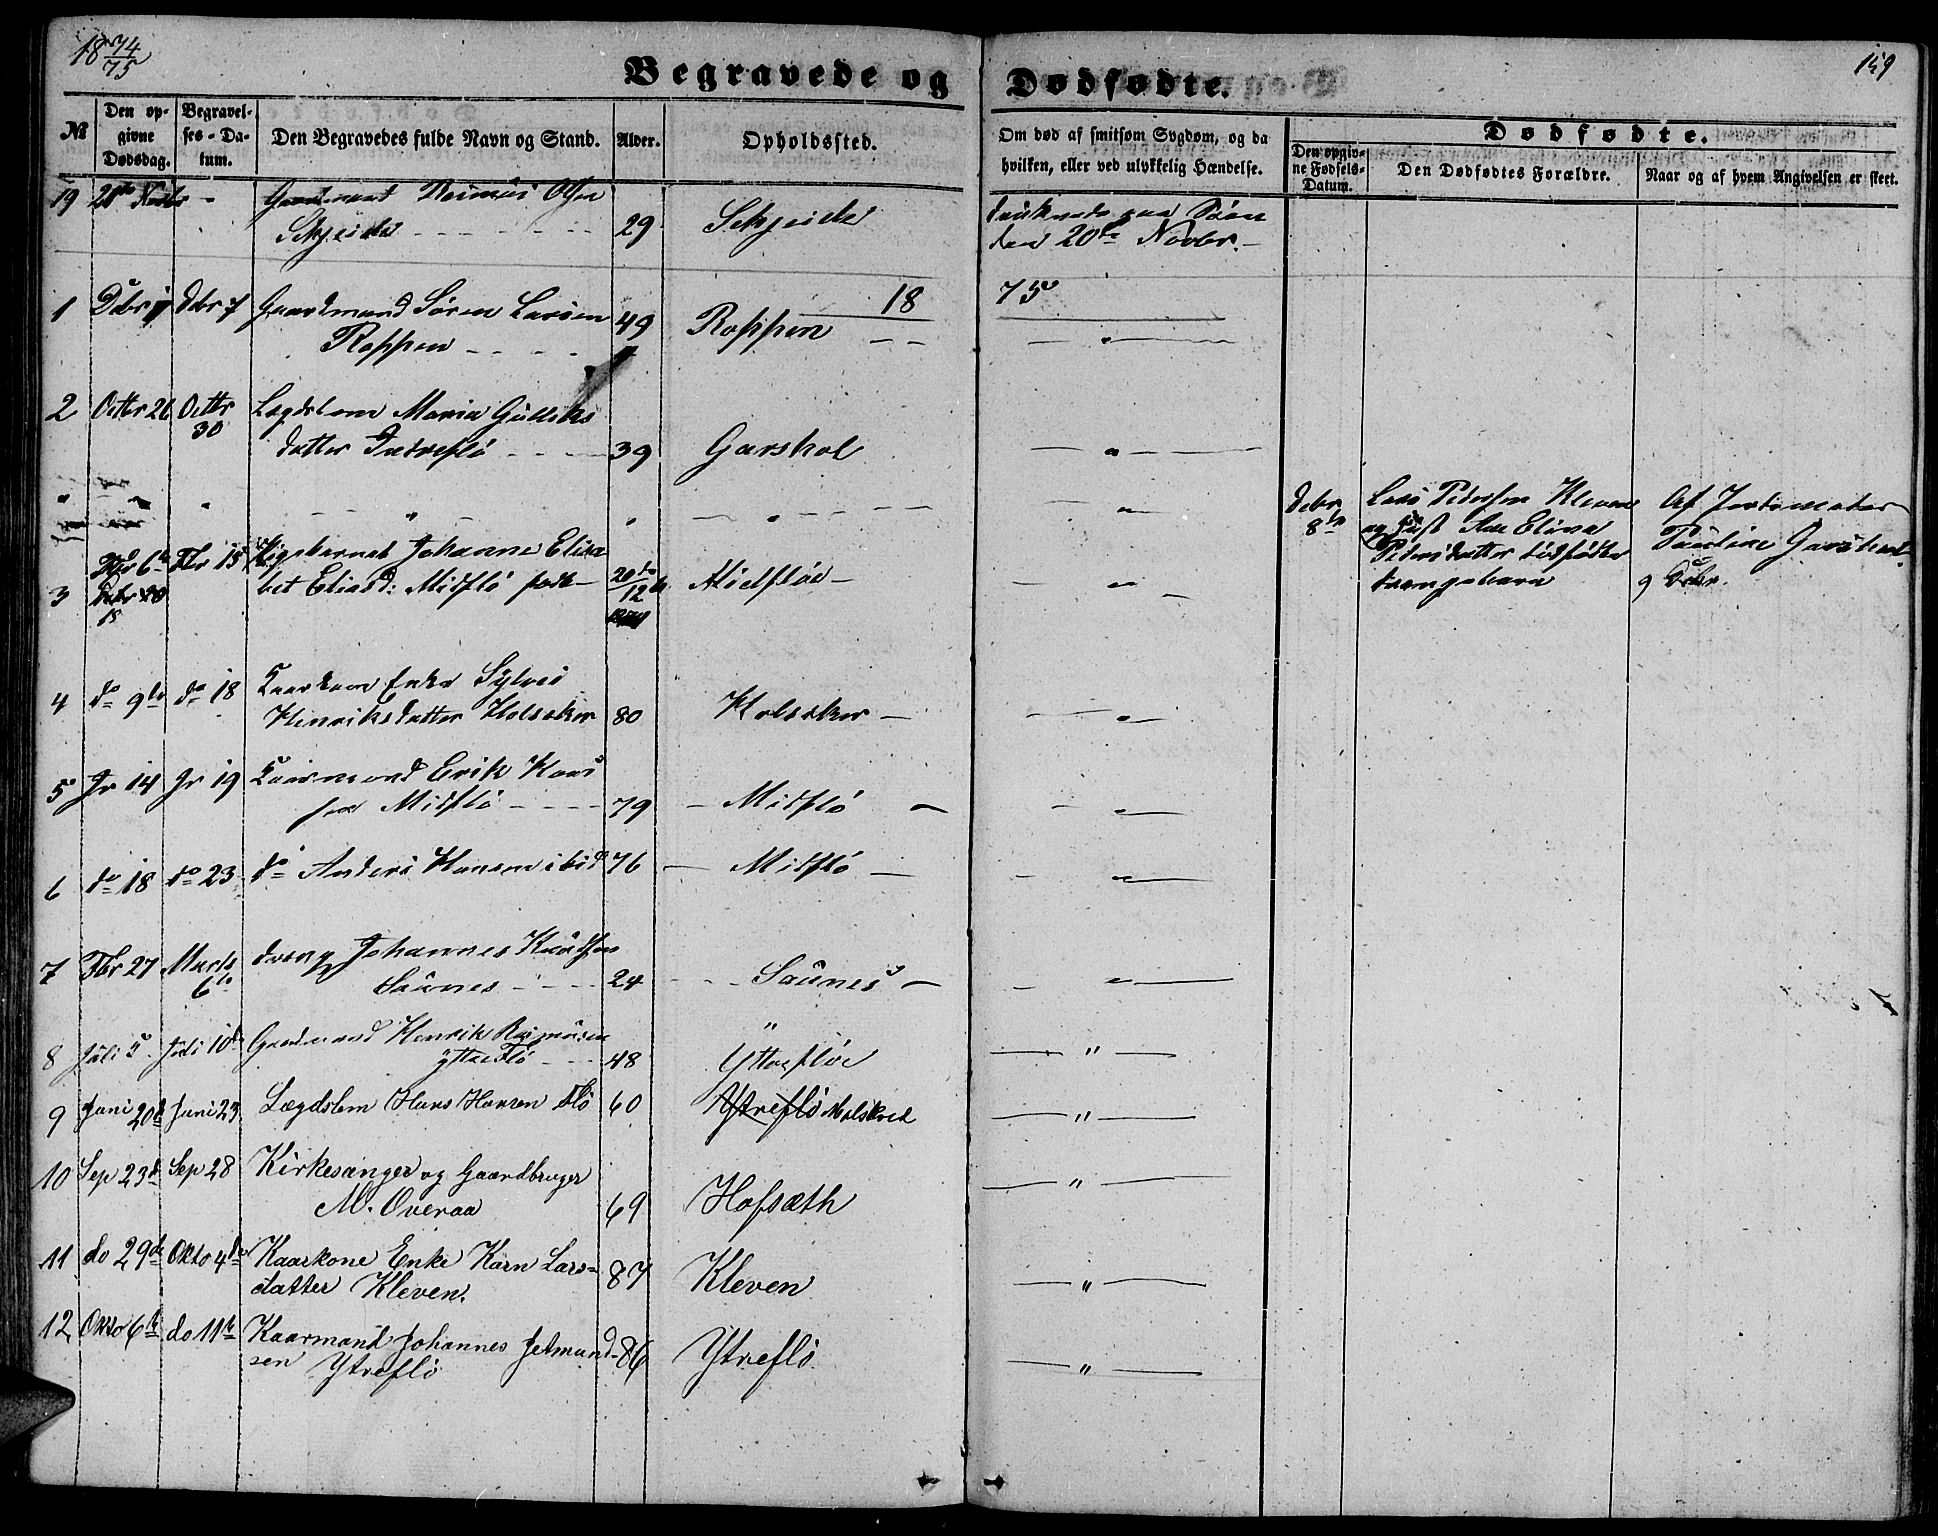 18 74/75
159
Begravede og Dødfødte.
№ Den opgivne Dødsdag. Begravelses-Datum. Den Begravedes fulde Navn og Stand. Alder. Opholdssted. Om død af smitsom Sygdom, og da hvilken, eller ved ulykkelig Hændelse. Dødfødte.
Den opgivne Fødsels-Datum. Den Dødfødtes Forældre. Naar og af hvem Angivelsen er skeet.
19 20de Novbr - Gaardmand Rasmus Olsen
Skjeide 29 Skjeide druknede paa Søen
den 20de Novbr.
18 75
1 Debr 1 Debr 7 Gaardmand Søren Larsen
Roppen 49 Roppen "
2 Octbr 26 Octbr 30 Lægdslem Maria Gulliks
datter Indreflö 39 Garshol "
" " " " " " " Debr 8de Lars Pedersen Kleven
og Hust Ane Elina
Pedersdatter dødfødte
drængebarn
Af Jordemoder
Pauline Garshol
9 Debr.
3 Fbr 15 Pigebarnet Johanne Elisa
bet Eliasd: Midflö født 20de/12 Midflöe "
4 do 9de do 18 Kaarkone Enke Sylvei
Henriksdatter Holsaker 80 Holsaker "
5 Jr 14 Jr 19 Kaarmand Erik Knud
sen Midflö 79 Midflö "
6 do 18 do 23 do Anders Hansen ibid 76 Midflö "
7 Fbr 27 Marts 6te dreng Johannes Knudsen
Saunes 24 Saunes "
8 Juli 5 Juli 10de Gaardmand Henrik Rasmusen
ytre Flö 48 Yttreflöe "
9 Juni 20de Juni 23 Lægdslem Hans Hansen Flö 60 Ytreflö Molskred "
10 Sep 23de Sep 28 Kirkesanger og Gaardbruger
M. Overaa 69 Hofsæth "
11 do 29de Okto 4de Kaarkone Enke Karn Lars=
datter Kleven. 87 Kleven "
12 Okto 6te do 11te Kaarmand Johannes Jetmund-
sen Ytreflö 86 Ytreflö "